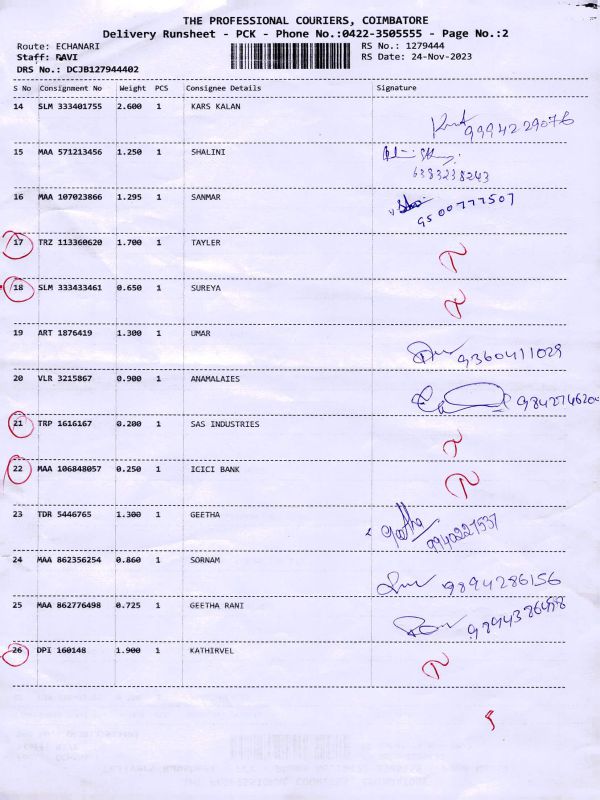 THE PROFESSIONAL COURIERS, COIMBATORE
Delivery Runsheet - PCK - Phone No.:0422-3505555 - Page No.:2
Route: ECHANARI RS No.: 1279444
Staff: RAVI RS Date: 24-Nov-2023
DRS No.: DCJB127944402
S No Consignment No Weight PCS Consignee Details Signature
14 SLM 333401755 2.600 1 KARS KALAN
9994229076
15 MAA 571213456 1.250 1 SHALINI
6383238243
16 MAA 107023866 1.295 1 SANMAR
9500777507
17 TRZ 113360620 1.700 1 TAYLER
18 SLM 333433461 0.650 1 SUREYA
19 ART 1876419 1.300 1 UMAR
9360411029
20 VLR 3215867 0.900 1 ANAMALAIES
21 TRP 1616167 0.200 1 SAS INDUSTRIES
22 MAA 106848057 0.250 1 ICICI BANK
23 TDR 5446765 1.300 1 GEETHA
Geetha
9940221537
24 MAA 862356254 0.860 1 SORNAM
9894286156
25 MAA 862776498 0.725 1 GEETHA RANI
26 DPI 160148 1.900 1 KATHIRVEL